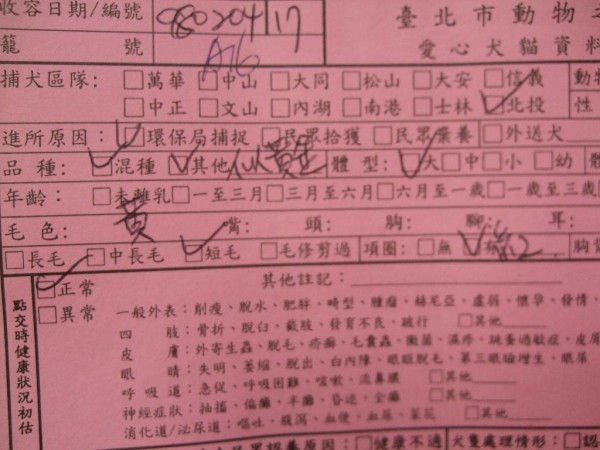 收容日期/編號 980204 17 臺北市動物
籠號 A16 愛心犬貓資料
捕犬區隊: □萬華 □中山 □大同 □松山 □大安 □信義 動物
□中正 □文山 □內湖 □南港 □士林 □北投 性
進所原因: □環保局捕捉 □民眾拾獲 □民眾棄養 □外送犬
品種: □混種 □其他 體型: □大 □中 □小 □幼 體
年齡: □未離乳 □一至三月 □三月至六月 □六月至一歲 □一歲至三歲
毛色: 黃 背: 頭: 胸: 腳: 耳:
□長毛 □中長毛 □短毛 □毛修剪過 項圈: □無 □有 紅 胸
點交時健康狀況初估
□正常 其他註記:
□異常 一般外表: 削瘦、脫水、肥胖、畸型、腫瘤、赫尼亞、虛弱、懷孕、發情、
四肢: 骨折、脫臼、截肢、發育不良、跛行 □其他
皮膚: 外寄生蟲、脫毛、疥癬、毛囊蟲、黴菌、濕疹、跳蚤過敏症、皮
眼睛: 失明、萎縮、脫出、白內障、眼眶脫毛、第三眼瞼增生、眼屎
呼吸道: 急促、呼吸困難、咳嗽、流鼻膿 □其他
神經症狀: 抽搐、偏癱、半癱、昏迷、全癱 □其他
消化道/泌尿道: 嘔吐、腹瀉、血便、血尿、菜花 □其他
原因: □健康不適 犬隻處理情形: □認